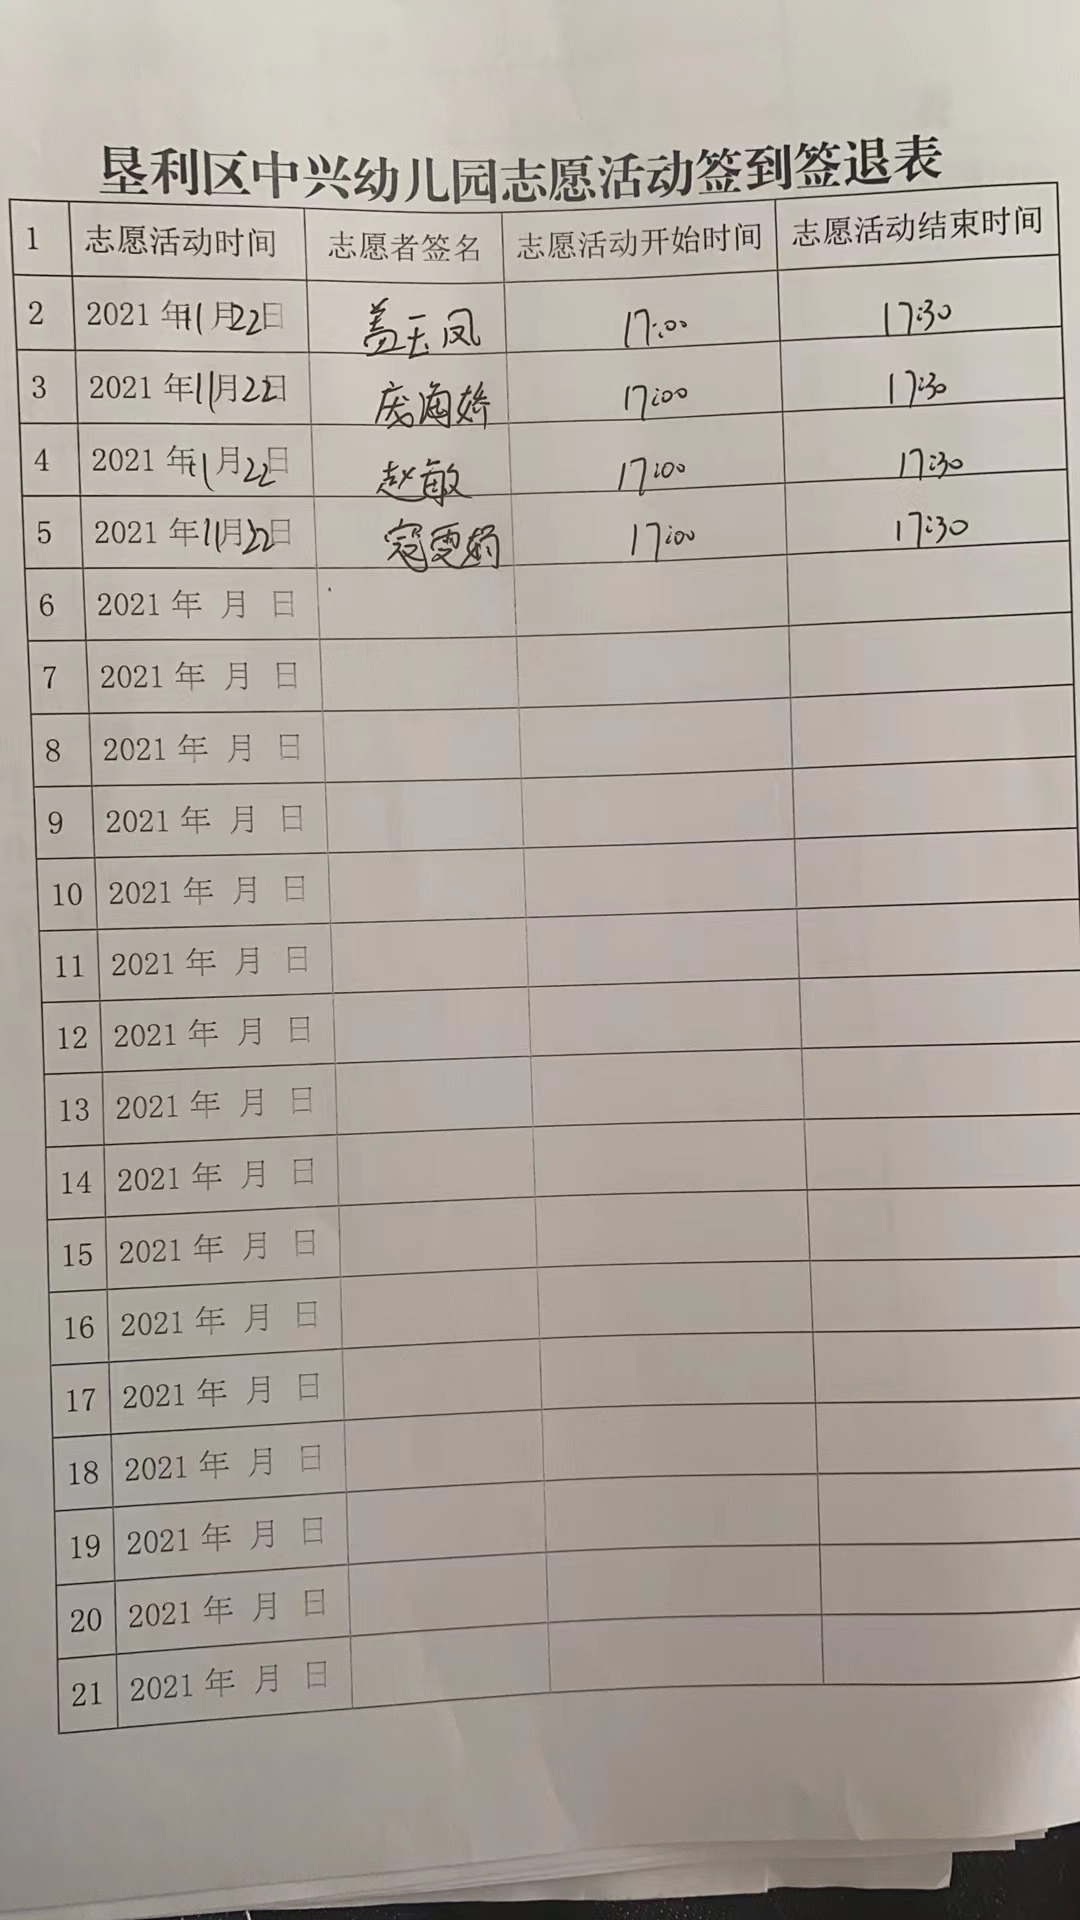 垦利区中兴幼儿园志愿活动签到签退表
1 志愿活动时间 志愿者签名 志愿活动开始时间 志愿活动结束时间
2 2021 年11月22日 盖玉凤 17:00 17:30
3 2021 年11月22日 庞海娇 17:00 17:30
4 2021 年11月22日 赵敏 17:00 17:30
5 2021 年11月22日 寇雯娟 17:00 17:30
6 2021 年 月 日
7 2021 年 月 日
8 2021 年 月 日
9 2021 年 月 日
10 2021 年 月 日
11 2021 年 月 日
12 2021 年 月 日
13 2021 年 月 日
14 2021 年 月 日
15 2021 年 月 日
16 2021 年 月 日
17 2021 年 月 日
18 2021 年 月 日
19 2021 年 月 日
20 2021 年 月 日
21 2021 年 月 日